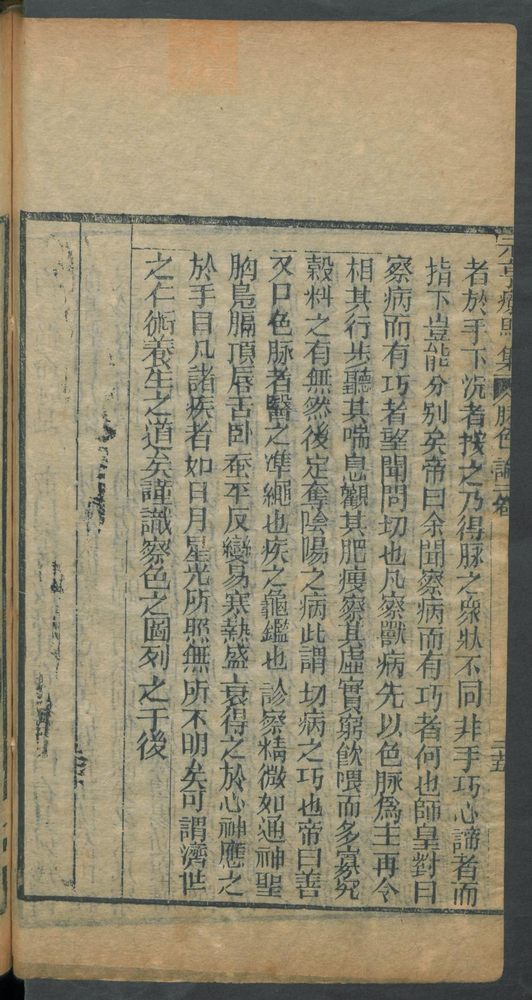 元亨療馬集 脉色論卷 二十五
者於手下沉者按之乃得脉之衆狀不同非手巧心諦者而
指下豈能分别矣帝曰余聞察病而有巧者何也師皇對曰
察病而有巧者望聞問切也凡察獸病先以色脉爲主再令
相其行步聽其喘息觀其肥瘦察其虛實窮飲喂而多寡究
穀料之有無然後定奪陰陽之病此謂切病之巧也帝曰善
又曰色脉者醫之準繩也疾之龜鑑也診察精微如通神聖
胸鳬膈頂唇舌卧蚕平反變易寒熱盛衰得之於心神應之
於手目凡諸疾者如日月星光所照無所不明矣可謂濟世
之仁術養生之道矣謹識察色之圖列之于後